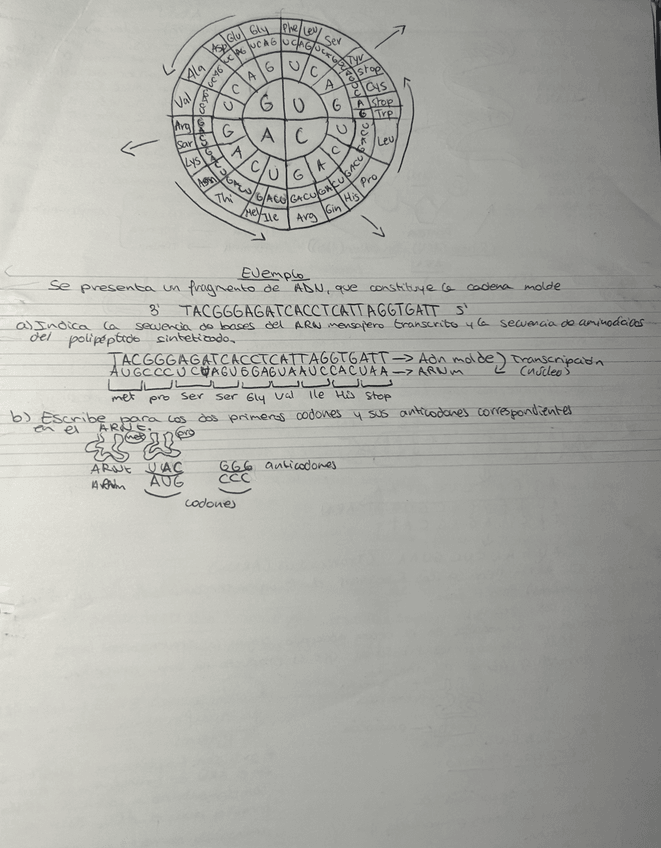 Asp Glu Gly Phe Leu Ser
Ala Tyr
Stop
Val Cys
Stop
Arg Trp
Leu
Lys
Asn Pro
His
Met Ile Arg
G U
A C
Ejemplo
Se presenta un fragmento de ADN, que constituye la cadena molde
3' TACGGGAGATCACCTCATTAGGTGATT 5'
a) Indica la secuencia de bases del ARN mensajero transcrito y la secuencia de aminoácidos
del polipéptido sintetizado.
TACGGGAGATCACCTCATTAGGTGATT → Adn molde Transcripción
AUGCCCUCUAGUGGAGUAAUCCACUAA → ARNm (núcleo)
met pro Ser Ser Gly Val Ile His Stop
b) Escribe para los dos primeros codones y sus anticodones correspondientes
en el ARNt.
met pro
ARNt UAC GGG anticodones
ARNm AUG CCC
codones